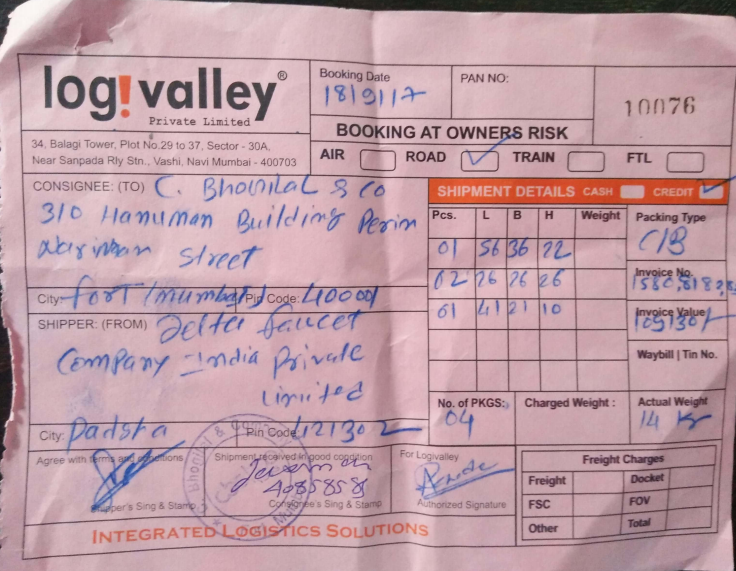 log!valley®
Private Limited
34, Balagi Tower, Plot No.29 to 37, Sector - 30A,
Near Sanpada Rly Stn., Vashi, Navi Mumbai - 400703
Booking Date
18/9/17
PAN NO:
10076
BOOKING AT OWNERS RISK
AIR ROAD TRAIN FTL
CONSIGNEE: (TO) C. Bhogilal & Co
310 Hanuman Building Perin
Nariman Street
City: Fort (mumbai) Pin Code: 400001
SHIPPER: (FROM) Delta faucet
Company India Private
Limited
City: Padgha Pin Code 421302
SHIPMENT DETAILS CASH CREDIT
Pcs. L B H Weight Packing Type
01 56 36 22 C/B
02 26 26 26 Invoice No.
01 41 21 10 Invoice Value
109130/-
Waybill | Tin No.
No. of PKGS: Charged Weight : Actual Weight
04 14 Kg
Agree with terms and conditions
Shipper's Sing & Stamp
Shipment received in good condition
40858581
Consignee's Sing & Stamp
For Logivalley
Authorized Signature
Freight Charges
Freight Docket
FSC FOV
Other Total
INTEGRATED LOGISTICS SOLUTIONS